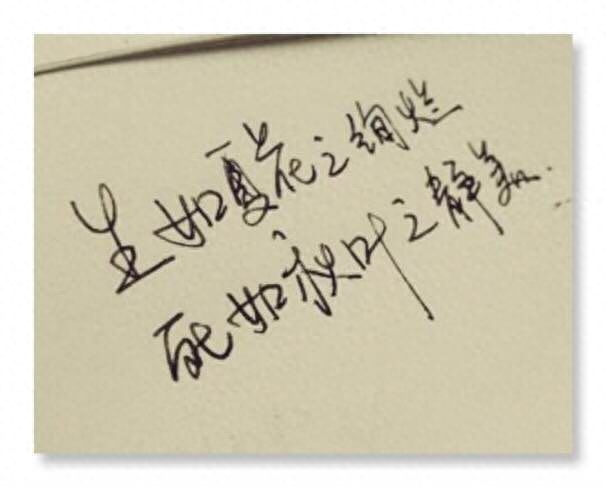 生如夏花之绚烂
死如秋叶之静美.